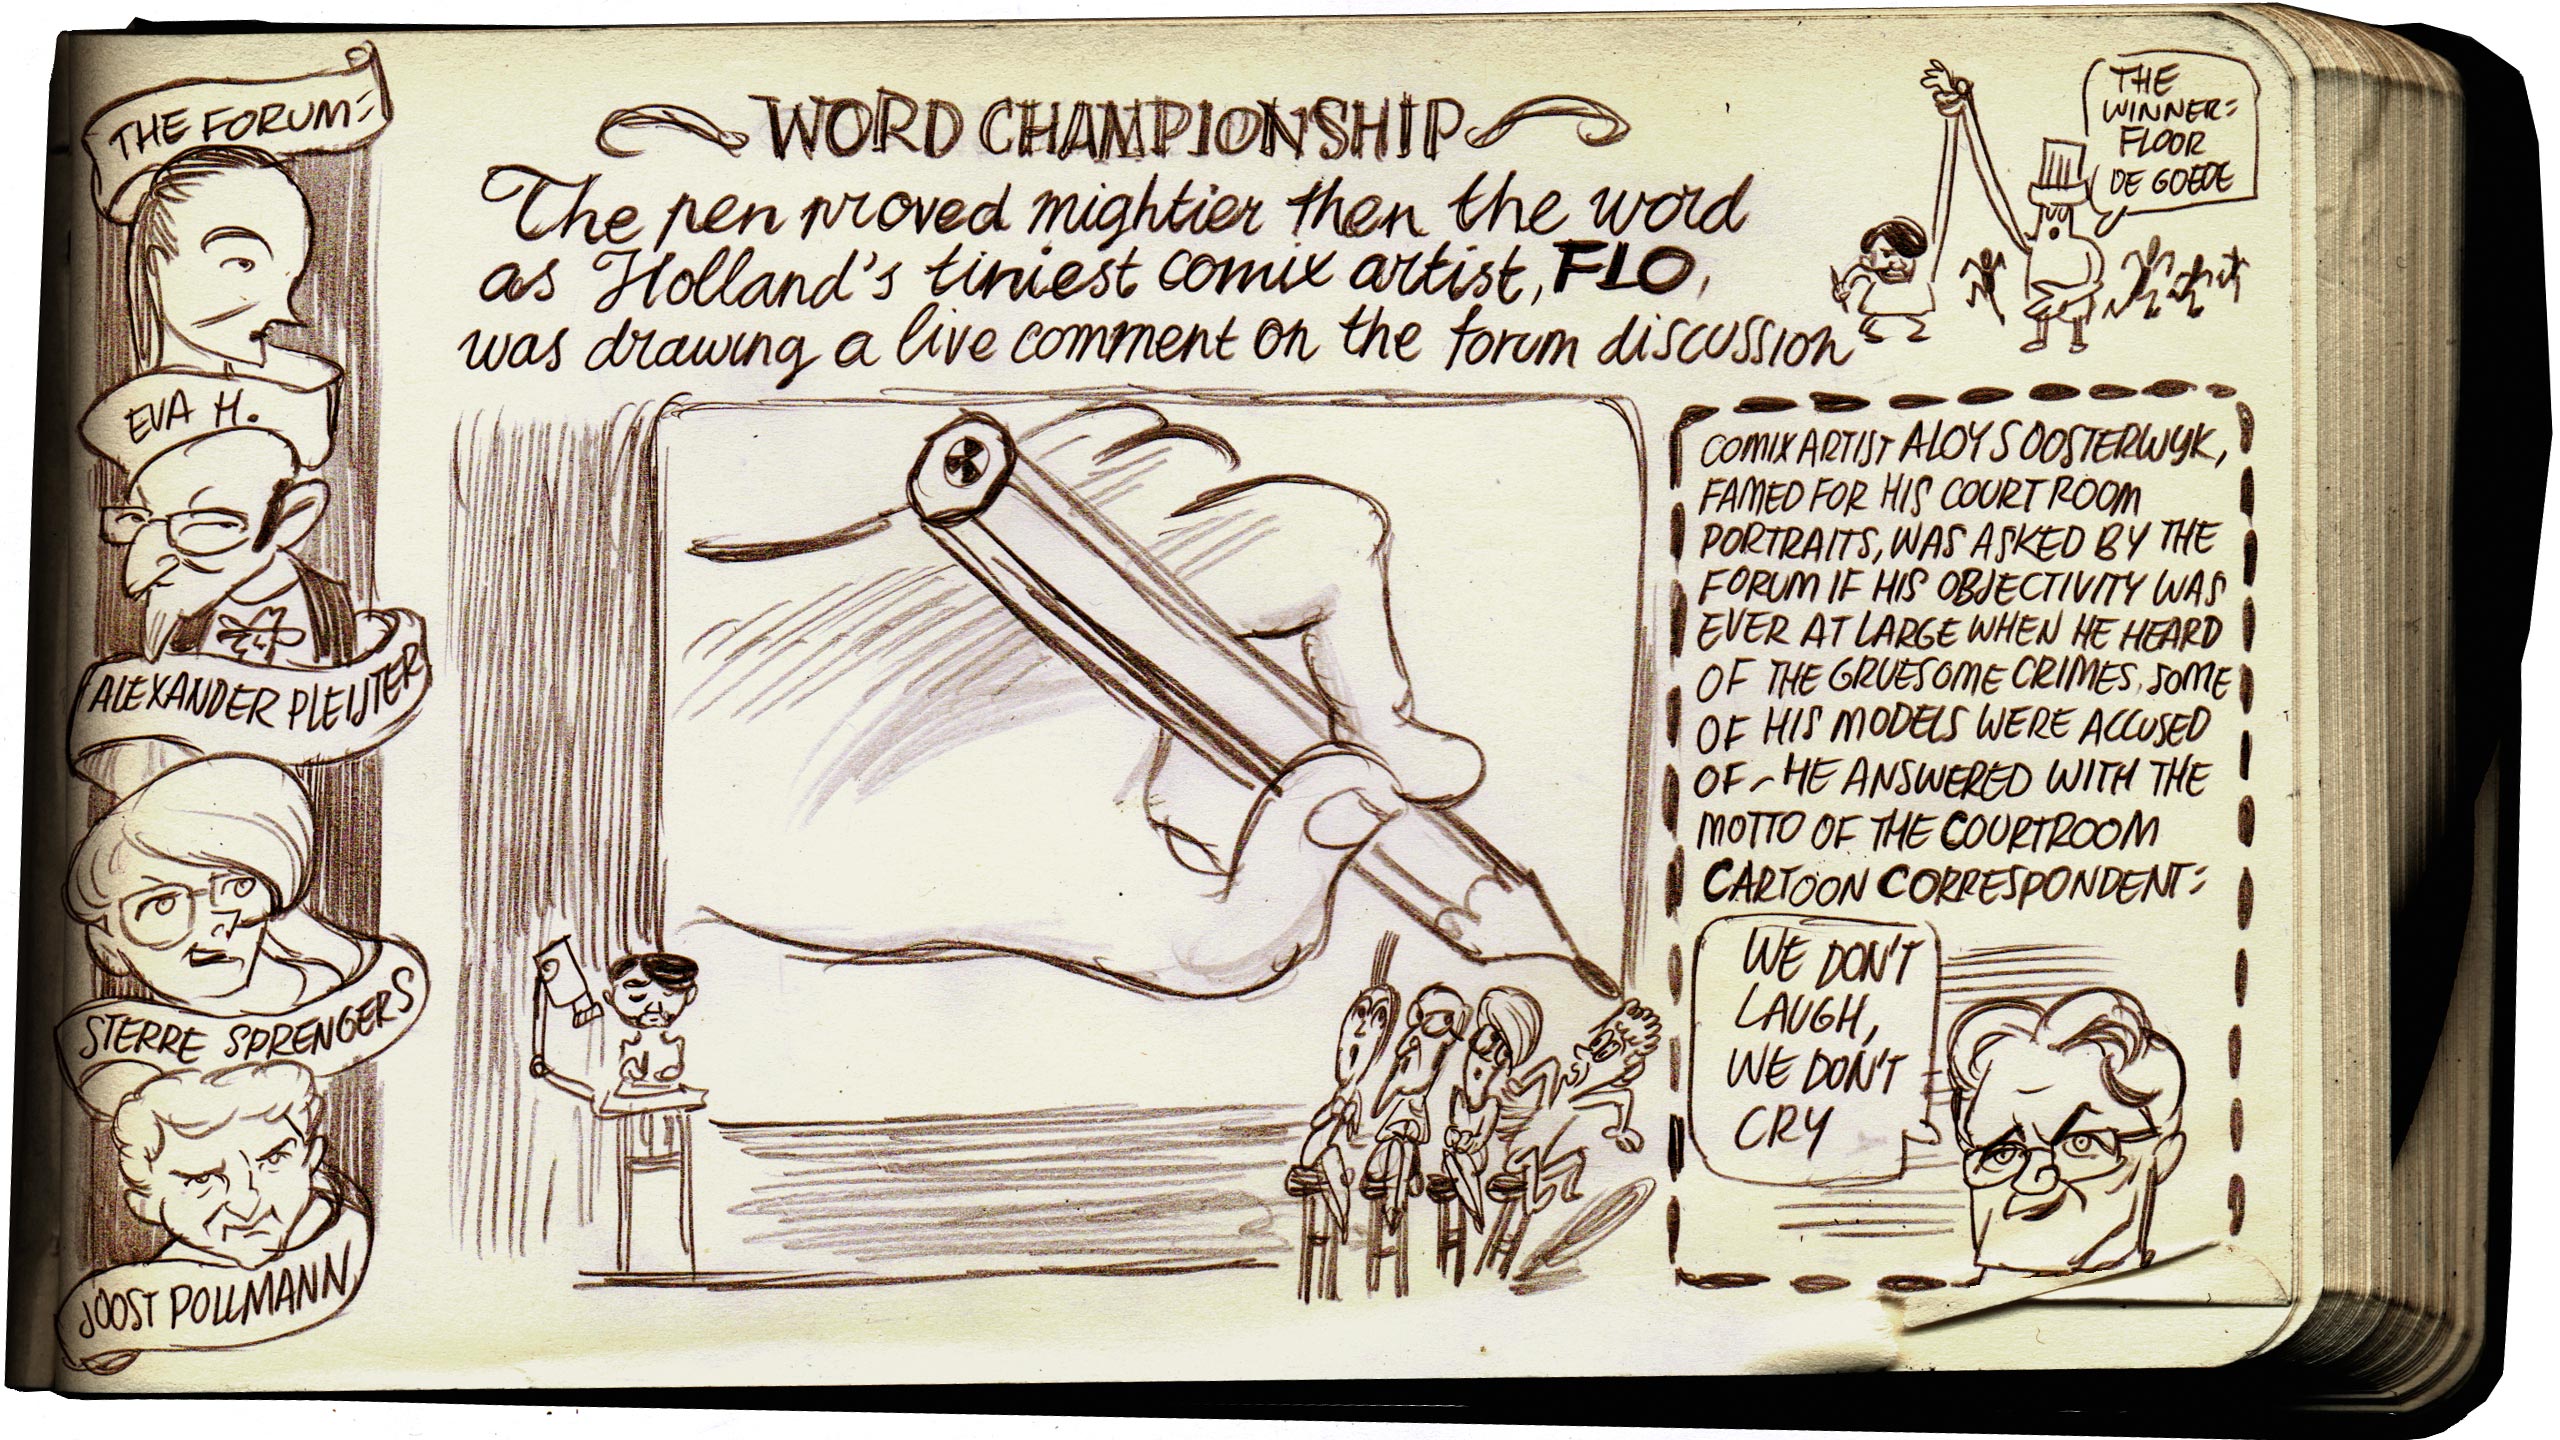 THE FORUM:
EVA H.
ALEXANDER PLEIJTER
STERRE SPRENGERS
JOOST POLLMANN
WORD CHAMPIONSHIP
The pen proved mightier then the word
as Holland's tiniest comix artist, FLO,
was drawing a live comment on the forum discussion
THE
WINNER:
FLOOR
DE GOEDE
COMIX ARTIST ALOYS OOSTERWYK,
FAMED FOR HIS COURT ROOM
PORTRAITS, WAS ASKED BY THE
FORUM IF HIS OBJECTIVITY WAS
EVER AT LARGE WHEN HE HEARD
OF THE GRUESOME CRIMES, SOME
OF HIS MODELS WERE ACCUSED
OF - HE ANSWERED WITH THE
MOTTO OF THE COURTROOM
CARTOON CORRESPONDENT:
WE DON'T
LAUGH,
WE DON'T
CRY